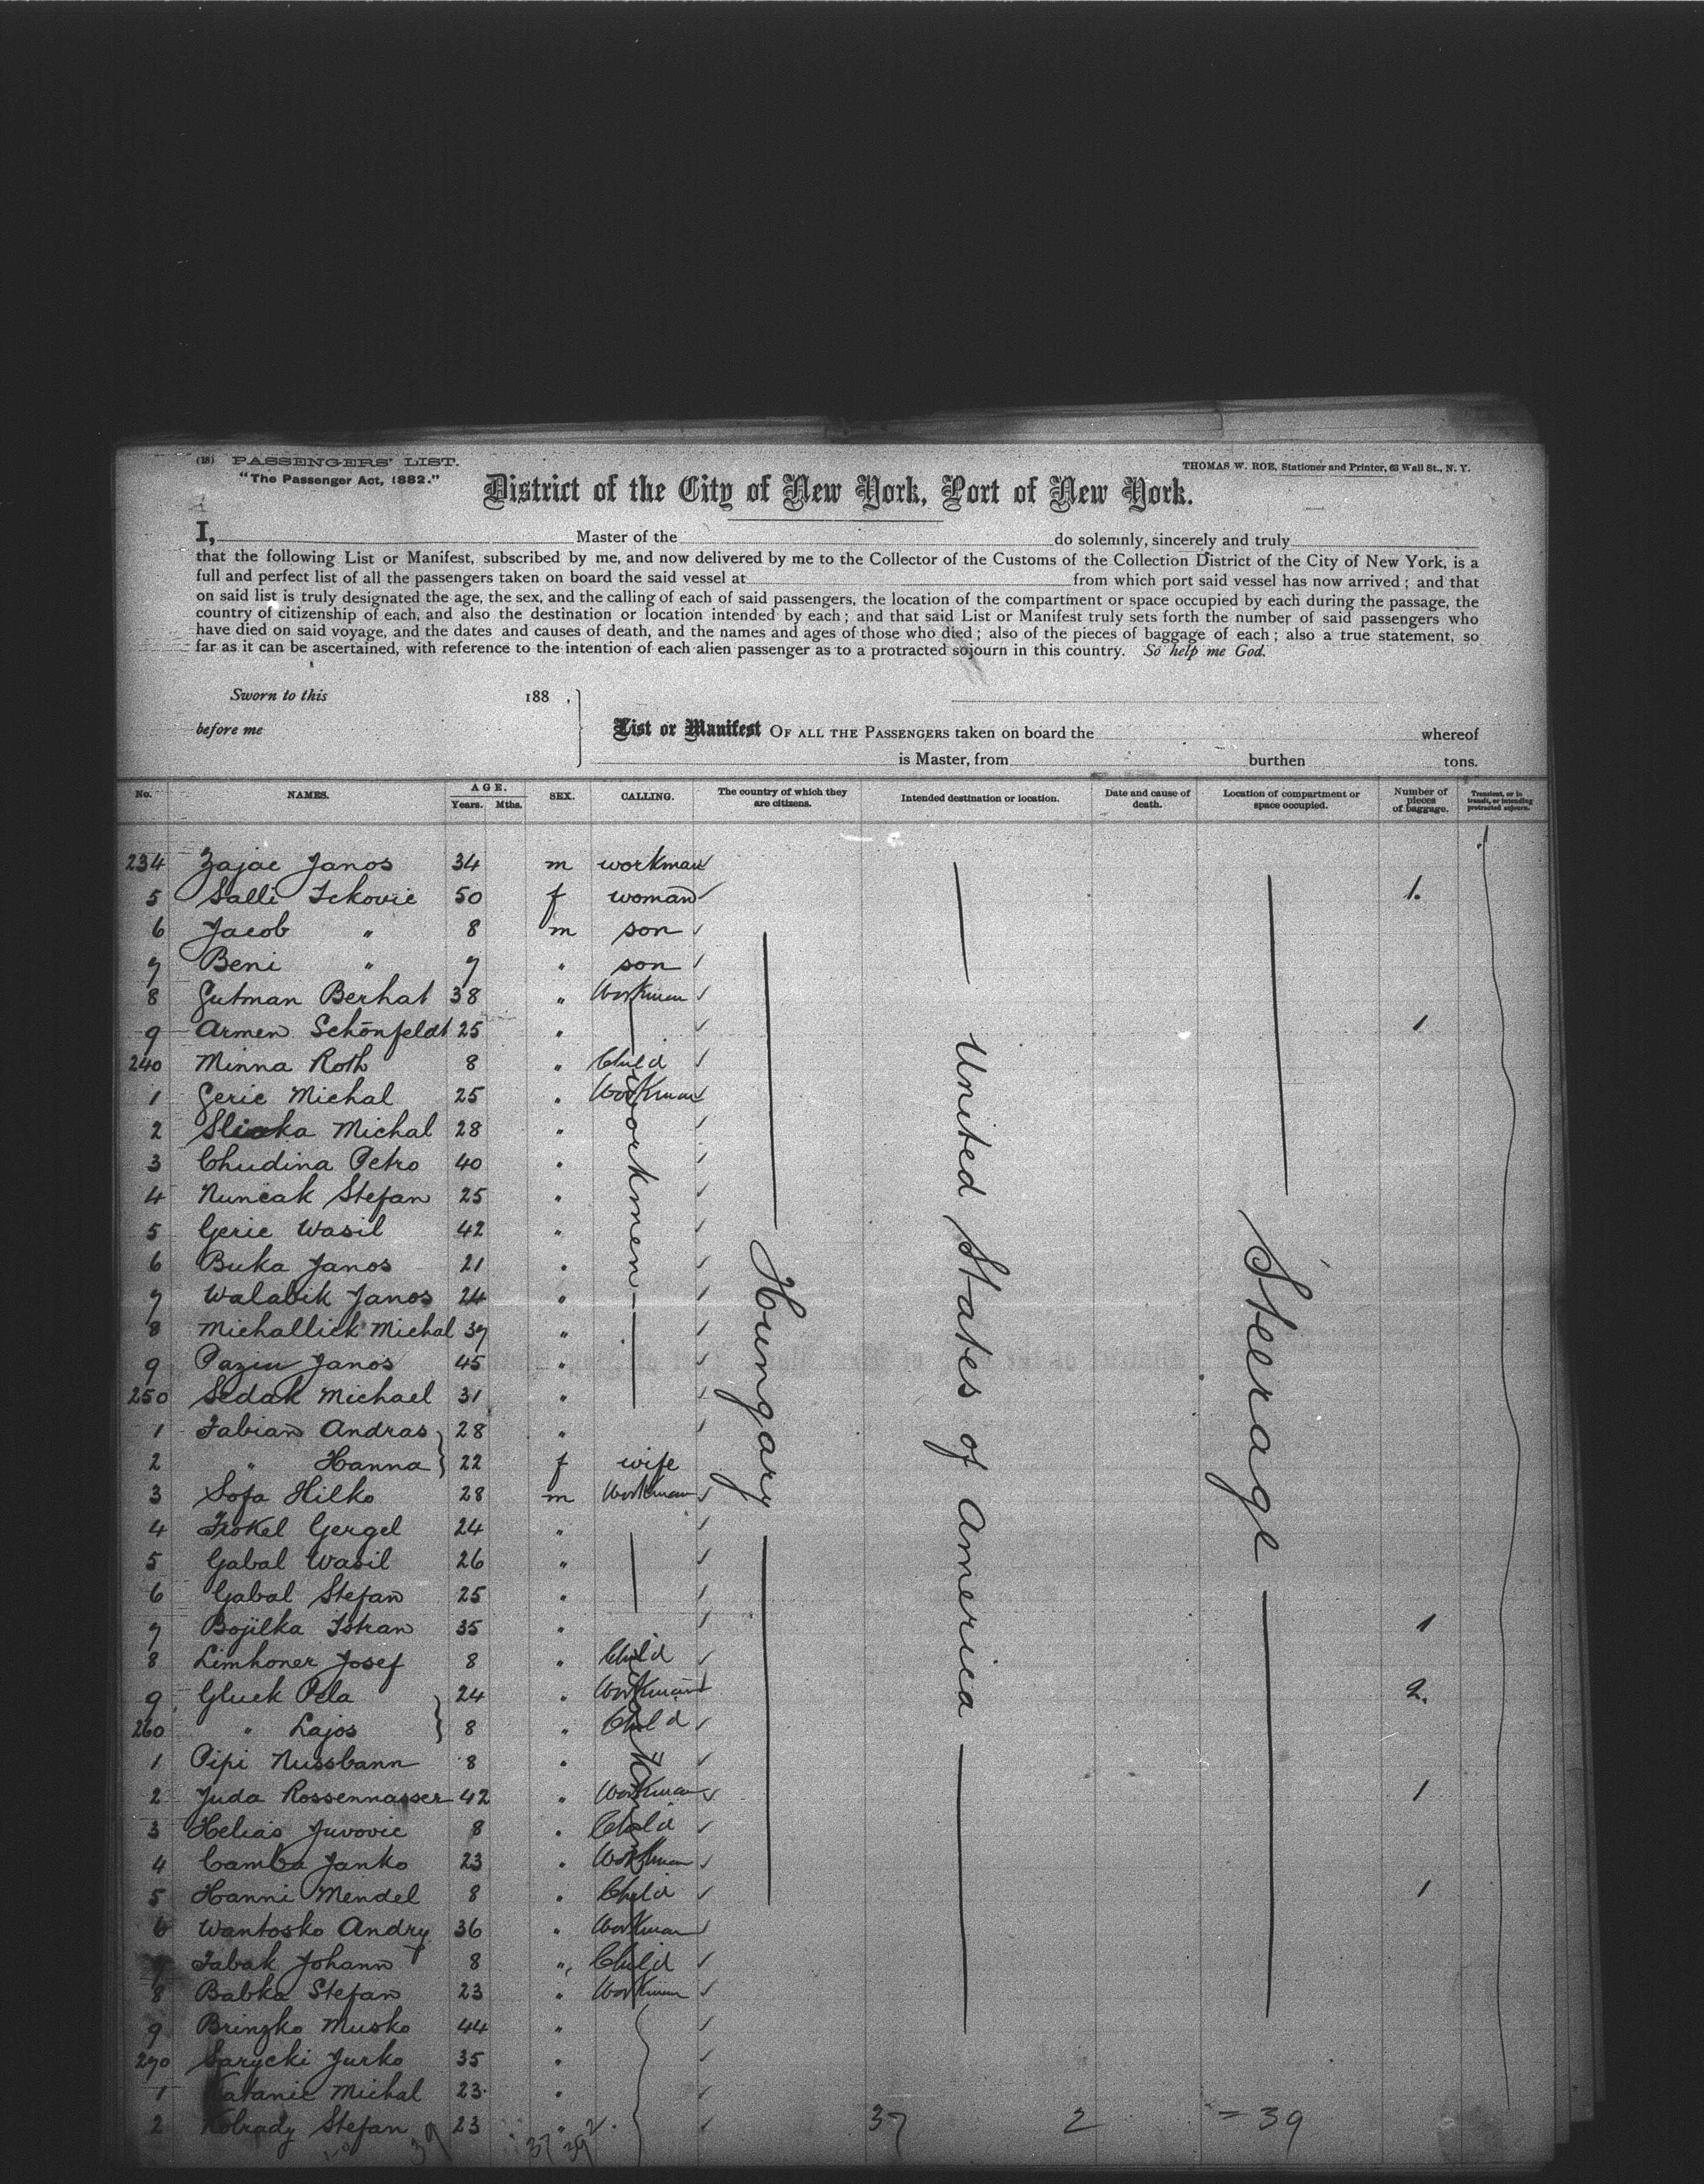 (18) PASSENGERS' LIST.
"The Passenger Act, 1882."
THOMAS W. ROE, Stationer and Printer, 63 Wall St., N. Y.
District of the City of New York, Port of New York.
I, Master of the do solemnly, sincerely and truly
that the following List or Manifest, subscribed by me, and now delivered by me to the Collector of the Customs of the Collection District of the City of New York, is a
full and perfect list of all the passengers taken on board the said vessel at from which port said vessel has now arrived; and that
on said list is truly designated the age, the sex, and the calling of each of said passengers, the location of the compartment or space occupied by each during the passage, the
country of citizenship of each, and also the destination or location intended by each; and that said List or Manifest truly sets forth the number of said passengers who
have died on said voyage, and the dates and causes of death, and the names and ages of those who died; also of the pieces of baggage of each; also a true statement, so
far as it can be ascertained, with reference to the intention of each alien passenger as to a protracted sojourn in this country. So help me God.
Sworn to this 188 .
before me
List or Manifest OF ALL THE PASSENGERS taken on board the whereof
is Master, from burthen tons.
No. NAMES. AGE. Years. Mths. SEX. CALLING. The country of which they are citizens. Intended destination or location. Date and cause of death. Location of compartment or space occupied. Number of pieces of baggage. Transient, or in transit, or intending protracted sojourn.
234 Zajac Janos 34 m workman
5 Salli Ickovic 50 f woman 1.
6 Jacob " 8 m son
7 Beni " 7 " son
8 Gutman Berhat 38 " Workman
9 Armen Schönfeldt 25 " 1
240 Minna Roth 8 " Child
1 Geric Michal 25 " Workman
2 Slicka Michal 28 "
3 Chudina Petro 40 "
4 Nuncak Stefan 25 "
5 Geric Wasil 42 "
6 Buka Janos 21 "
7 Walabik Janos 24 "
8 Michallick Michal 37 "
9 Pazin Janos 45 "
250 Sedak Michael 31 "
1 Fabian Andras 28 "
2 " Hanna 22 f wife
3 Sofa Hilko 28 m Workman
4 Frokel Gergel 24 "
5 Gabal Wasil 26 "
6 Gabal Stefan 25 "
7 Bojilka Istran 35 " 1
8 Limhoner Josef 8 " Child
9 Gluck Pela 24 " Workman 2.
260 " Lajos 8 " Child
1 Pipi Nussbann 8 "
2 Juda Rossennasser 42 " Workman 1
3 Helias Juvovic 8 " Child
4 Camba Janko 23 " Workman
5 Hanni Mendel 8 " Child 1
6 Wantosko Andry 36 " Workman
7 Tabak Johann 8 " Child
8 Babka Stefan 23 " Workman
9 Brinzko Musko 44 "
270 Sarycki Jurko 35 "
1 Michal 23 "
2 Stefan 23 "
Workmen
Hungary
United States of America
Steerage
37 2 = 39
39 37 39 2